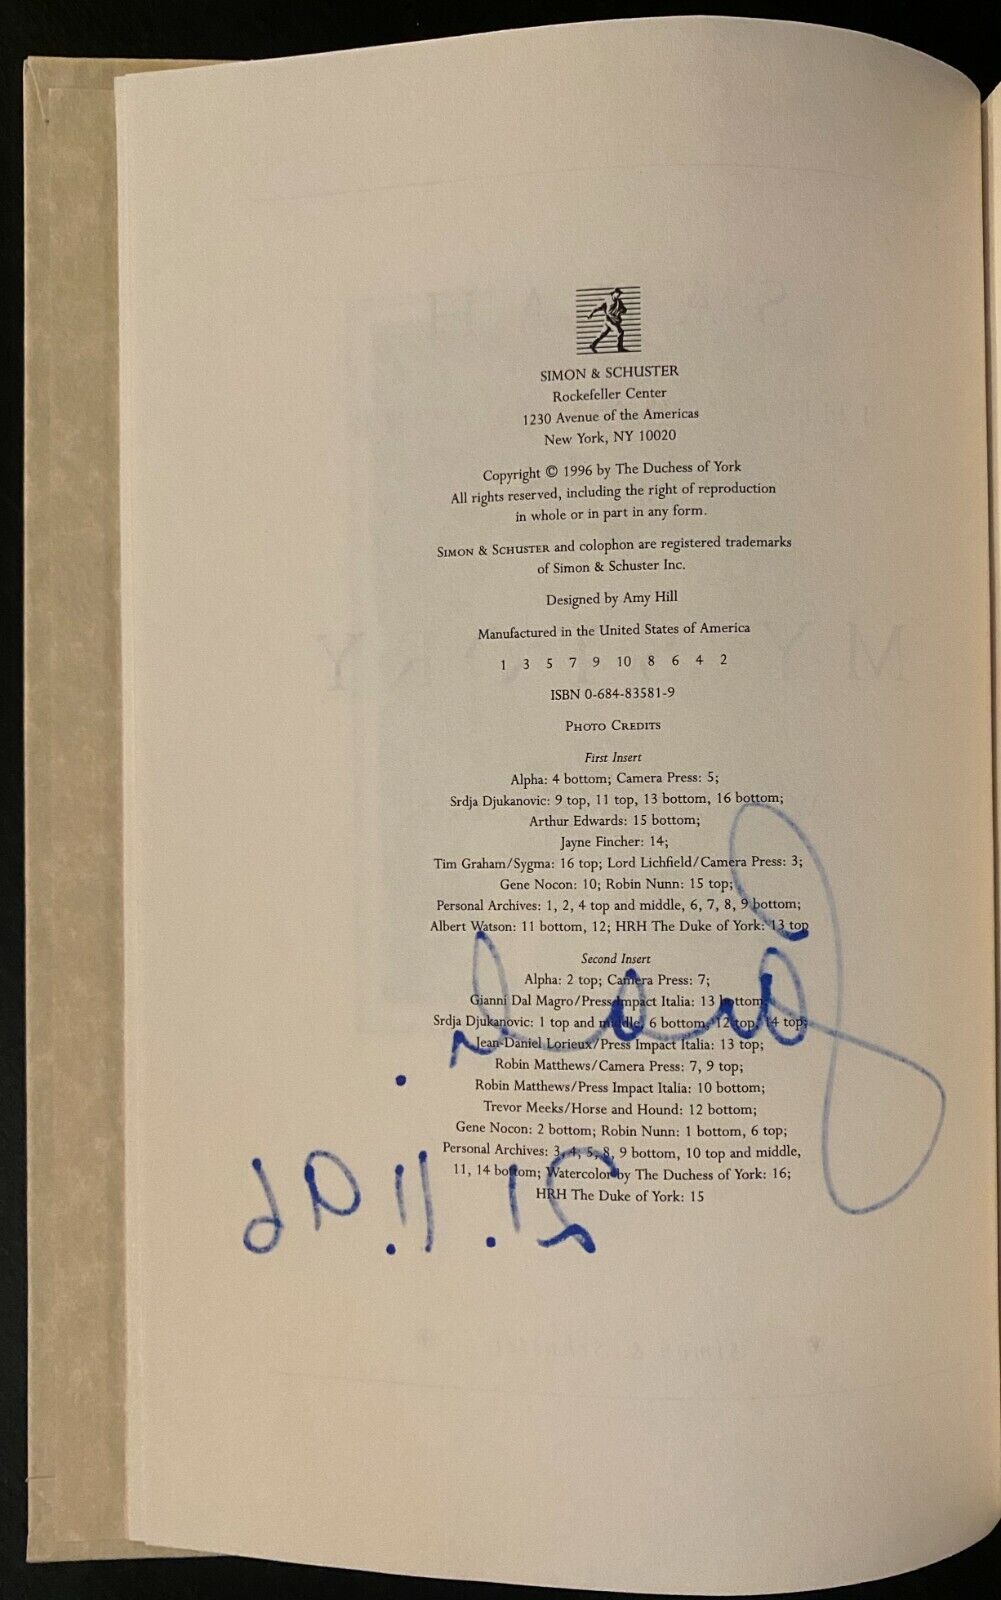 SIMON & SCHUSTER
Rockefeller Center
1230 Avenue of the Americas
New York, NY 10020
Copyright © 1996 by The Duchess of York
All rights reserved, including the right of reproduction
in whole or in part in any form.
SIMON & SCHUSTER and colophon are registered trademarks
of Simon & Schuster Inc.
Designed by Amy Hill
Manufactured in the United States of America
1 3 5 7 9 10 8 6 4 2
ISBN 0-684-83581-9
PHOTO CREDITS
First Insert
Alpha: 4 bottom; Camera Press: 5;
Srdja Djukanovic: 9 top, 11 top, 13 bottom, 16 bottom;
Arthur Edwards: 15 bottom;
Jayne Fincher: 14;
Tim Graham/Sygma: 16 top; Lord Lichfield/Camera Press: 3;
Gene Nocon: 10; Robin Nunn: 15 top;
Personal Archives: 1, 2, 4 top and middle, 6, 7, 8, 9 bottom;
Albert Watson: 11 bottom, 12; HRH The Duke of York: 13 top
Second Insert
Alpha: 2 top; Camera Press: 7;
Gianni Dal Magro/Press Impact Italia: 13 bottom;
Srdja Djukanovic: 1 top and middle, 6 bottom, 12 top, 14 top;
Jean-Daniel Lorieux/Press Impact Italia: 13 top;
Robin Matthews/Camera Press: 7, 9 top;
Robin Matthews/Press Impact Italia: 10 bottom;
Trevor Meeks/Horse and Hound: 12 bottom;
Gene Nocon: 2 bottom; Robin Nunn: 1 bottom, 6 top;
Personal Archives: 3, 4, 5, 8, 9 bottom, 10 top and middle,
11, 14 bottom; Watercolor by The Duchess of York: 16;
HRH The Duke of York: 15